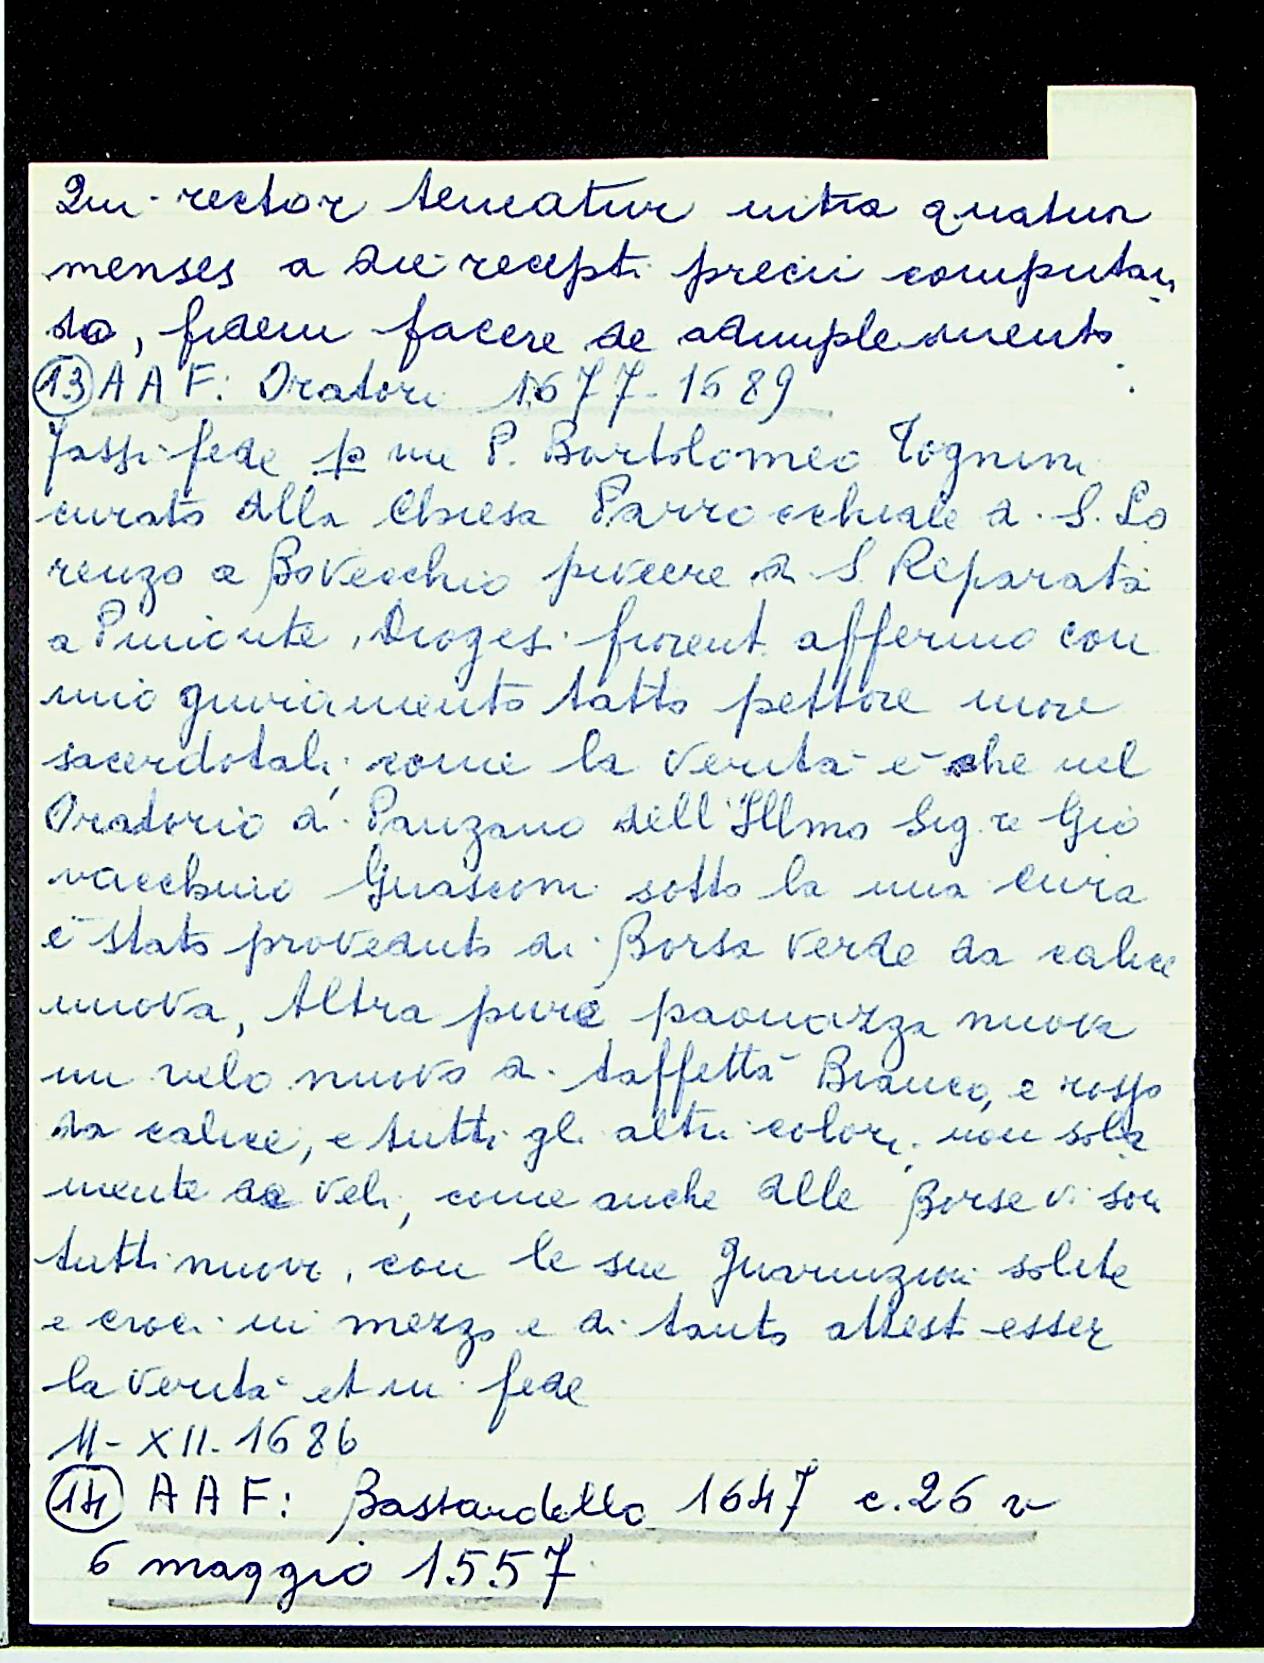 Qui rector teneatur intra quatuor
menses a die recepti precii computan
do, fidem facere de adimplemento
13 AAF: Oratori 1677-1689
Fassi fede p me P. Bartolomeo Tognini
curato della Chiesa Parrocchiale di S. Lo
renzo a Bovecchio piviere di S. Reparata
a Pimonte, Diogesi fiorent. affermo con
mio giuriamento tatto pettore more
sacerdotali, come la verità è che nel
Oratorio di Panzano dell'Illmo Sig.re Gio
vacchino Guasconi sotto la mia cura
è stato proveduto di Borsa verde da calice
nuova, Altra pure paonazza nuova
un velo nuovo di taffettà Bianco, e rosso
da calice, e tutti gli altri colori non sola
mente de veli, come anche delle Borse vi son
tutti nuovi, con le sue guarnizioni solite
e croci in mezzo e di tanto attesto esser
la verità et in fede
11-XII-1686
14 AAF: Bastardello 1647 c.26 v
6 maggio 1557